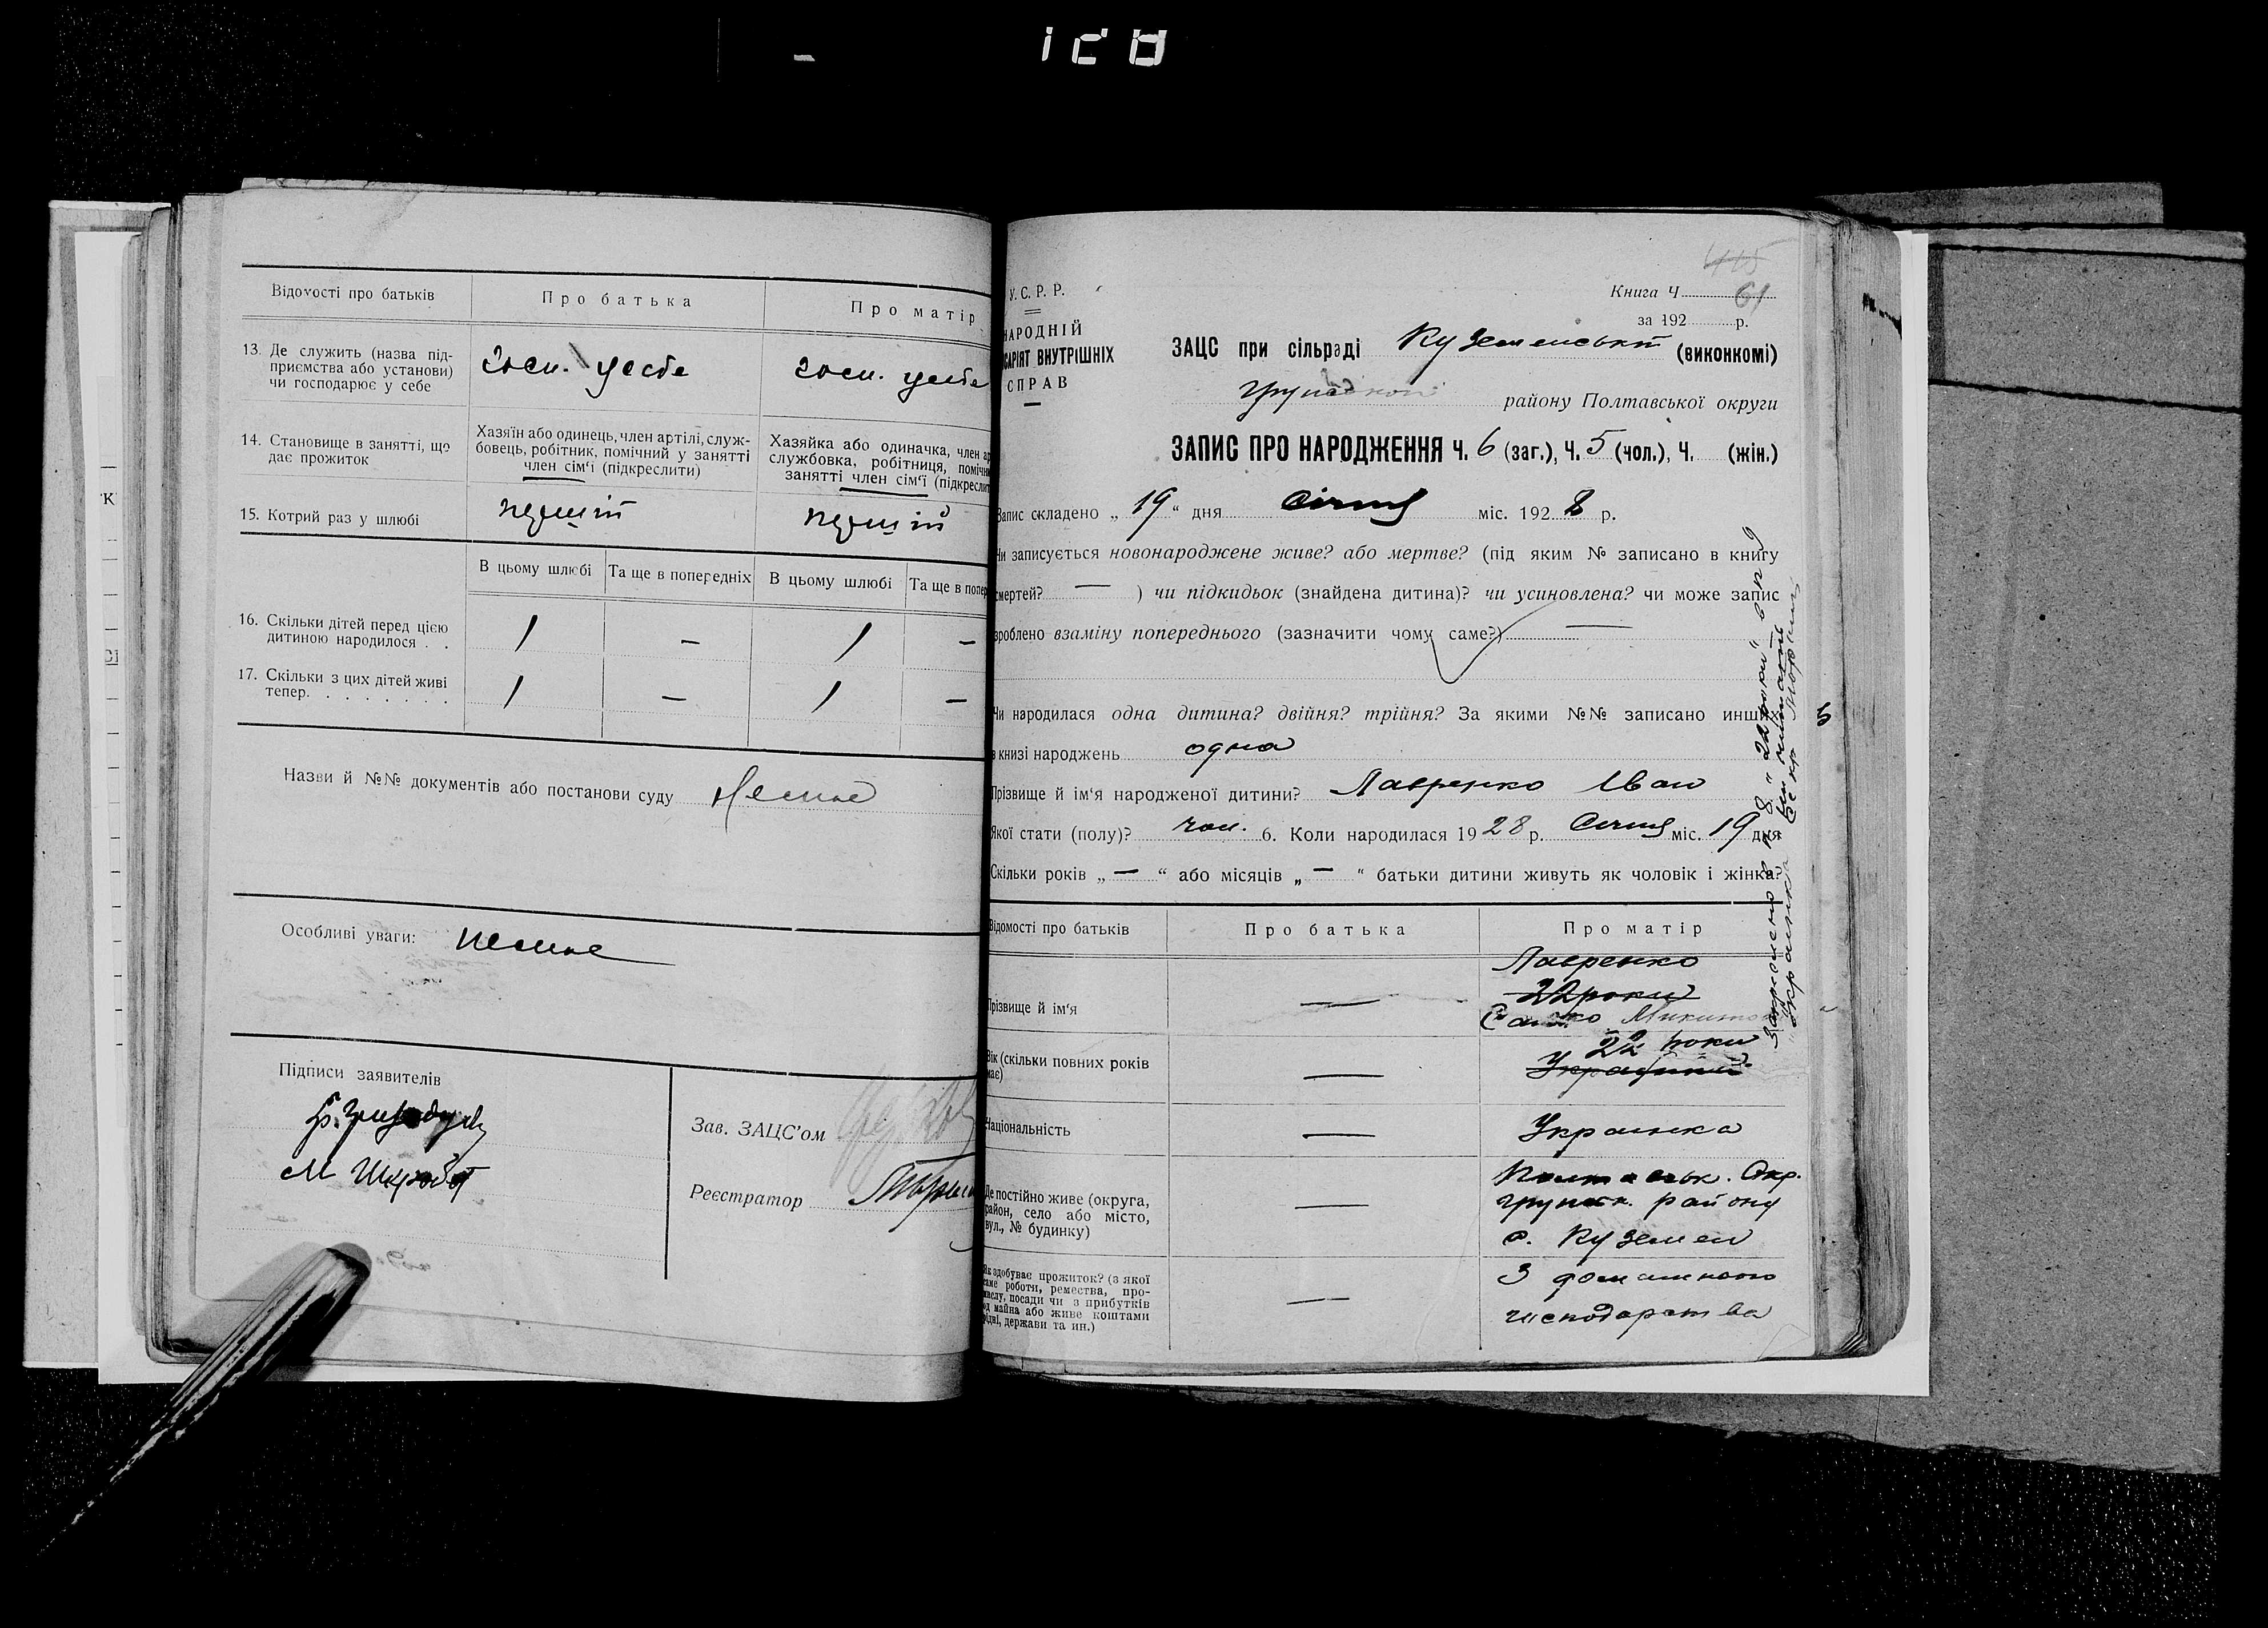 Відомості про батьків
Про батька
Про матір
13. Де служить (назва під-
приємства або установи)
чи господарює у себе
госп. у себе
госп. у себе
14. Становище в занятті, що
дає прожиток
Хазяїн або одинець, член артілі, служ-
бовець, робітник, помічний у занятті
член сім'ї (підкреслити)
Хазяйка або одиначка, член ар
службовка, робітниця, помічн
занятті член сім'ї (підкреслит
15. Котрий раз у шлюбі
перший
перший
В цьому шлюбі
Та ще в попередніх
В цьому шлюбі
Та ще в попер
16. Скільки дітей перед цією
дитиною народилося . .
1 — 1 —
17. Скільки з цих дітей живі
тепер. . . . . . . .
1 — 1 —
Назви й №№ документів або постанови суду
Немає
Особливі уваги: немає
Підписи заявителів
Зав. ЗАЦС'ом
Реєстратор
У. С. Р. Р.
НАРОДНІЙ
САРІЯТ ВНУТРІШНІХ
СПРАВ
445
Книга Ч. 61
за 192 р.
ЗАЦС при сільраді Куземенські (виконкомі)
району Полтавської округи
ЗАПИС ПРО НАРОДЖЕННЯ Ч. 6 (заг.), Ч. 5 (чол.), Ч. (жін.)
Запис складено „ 19 “ дня Січня міс. 1928 р.
Чи записується новонароджене живе? або мертве? (під яким № записано в книгу
смертей? — ) чи підкидьок (знайдена дитина)? чи усиновлена? чи може запис
зроблено взаміну попереднього (зазначити чому саме?) —
Чи народилася одна дитина? двійня? трійня? За якими №№ записано инших
в книзі народжень одна
Прізвище й ім'я народженої дитини? Лавренко Іван
Якої стати (полу)? чол. 6. Коли народилася 1928 р. Січня міс. 19 дня
Скільки років „ — “ або місяців „ — “ батьки дитини живуть як чоловік і жінка?
Відомості про батьків
Про батька
Про матір
Прізвище й ім'я
—
Лавренко
22 роки
Вік (скільки повних років
має)
—
22 роки
Національність
—
Українка
Де постійно живе (округа,
район, село або місто,
вул., № будинку)
—
Полтавськ. Окр.
грунськ. району
с. Куземен
Як здобуває прожиток? (з якої
саме роботи, ремества, про-
мислу, посади чи з прибутків
од майна або живе коштами
рідні, держави та ин.)
—
З домашнього
господарства